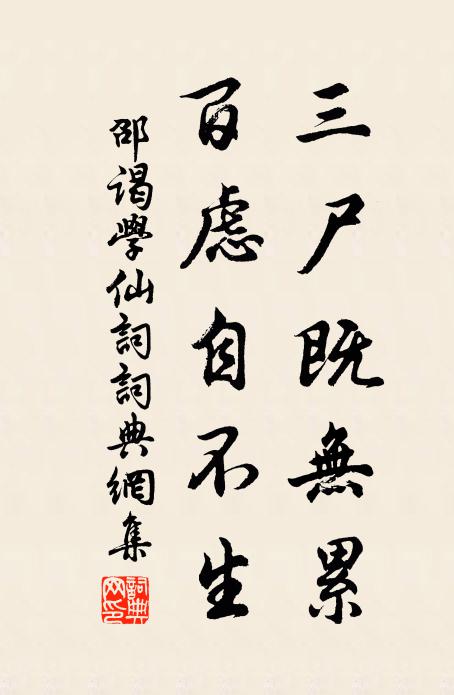 三尸既無累
百慮自不生
邵谒學仙詞詞典網集
詞典网印